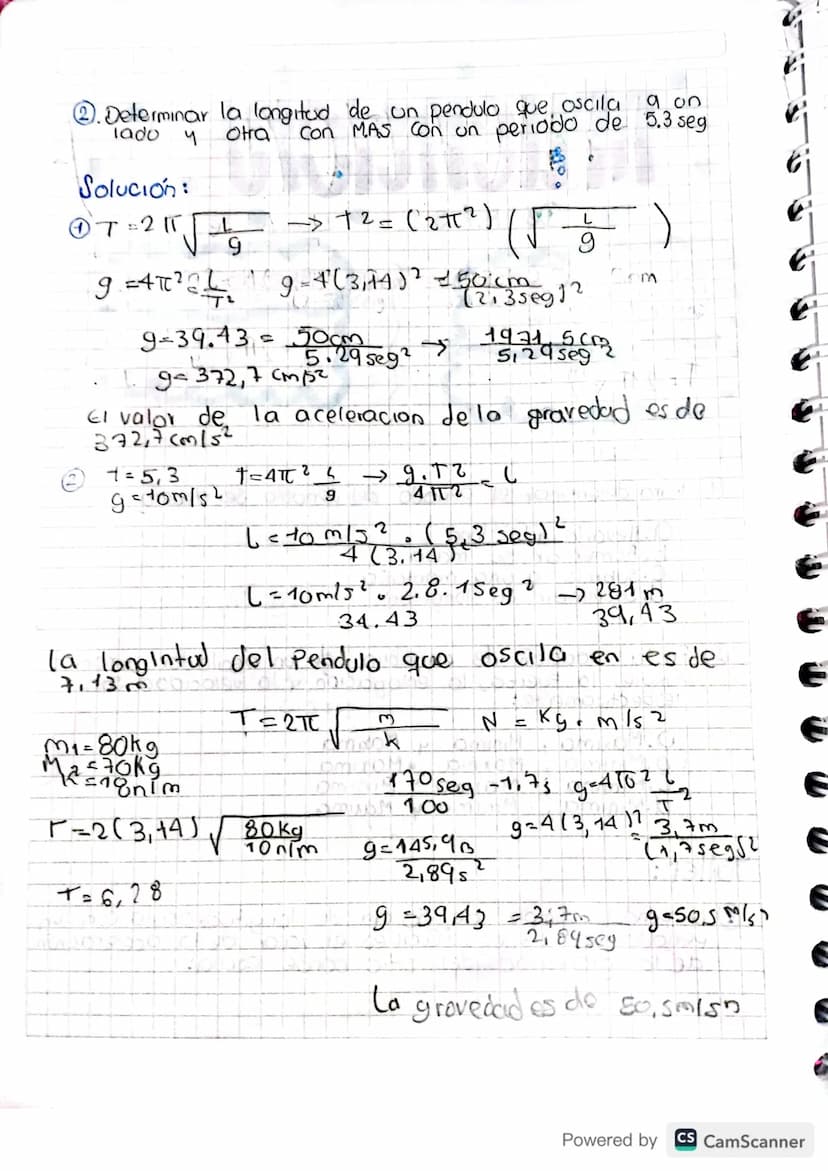 ②. Determinar la longitud de un pendulo que oscila a un
lado y otra con MAS con un periodo de 5.3 seg
Solución:
① T = 2π √(L/g) → t2 = (2π²) (√(L/g))
g = 4π² L/T² g = 4(3,14)² = 50 cm/(2.3seg)²
g = 39.43 = 50cm/5.29seg² → 1971.5cm/5,29seg²
g = 372,7 cm/s²
El valor de la aceleracion de la gravedad es de
372,7 cm/s²
② t = 5,3 t = 4π² L/g → g.T2/4π2 = L
g = 10m/s²
L = 10 m/s² . (5,3 seg)²/4(3.14)
L = 10m/s² . 2.8.1seg² → 281m
34.43 39,43
la longintud del Pendulo que oscila en es de
7,13m
T = 2π √(m/k) N = Kg. m/s2
m1 = 80kg
M2 = 70Kg
K = 18n/m
170seg/100 - 1.7s g = 4π² L/T²
T = 2(3,14) √(80kg/10n/m) g = 145,9/2,89s² g = 4(3,14)² = 3,7m/(1,7seg)²
T = 6,28
g = 39,43 = 3,7m/2,89seg g = 50,5 m/s²
La gravedad es de 50,5m/s
Powered by CS CamScanner